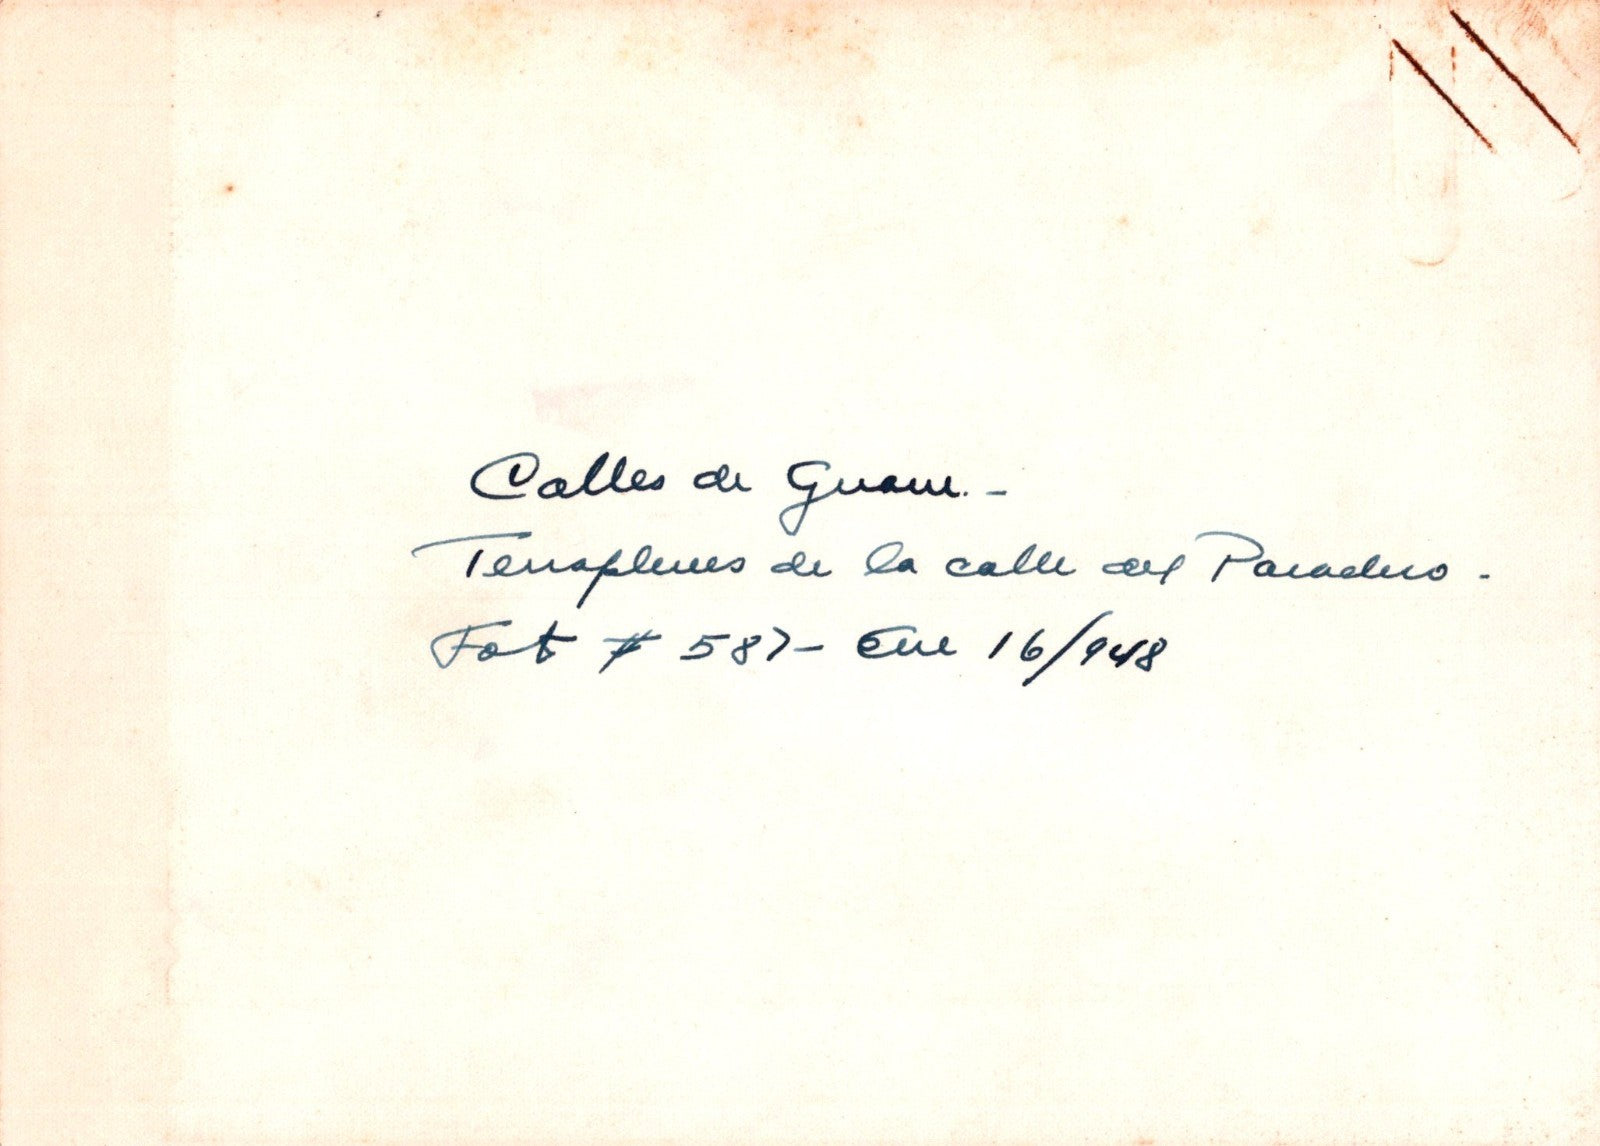 Calles de Guane. -
Terraplenes de la calle del Paradero -
Fot # 587 - Ene 16/948